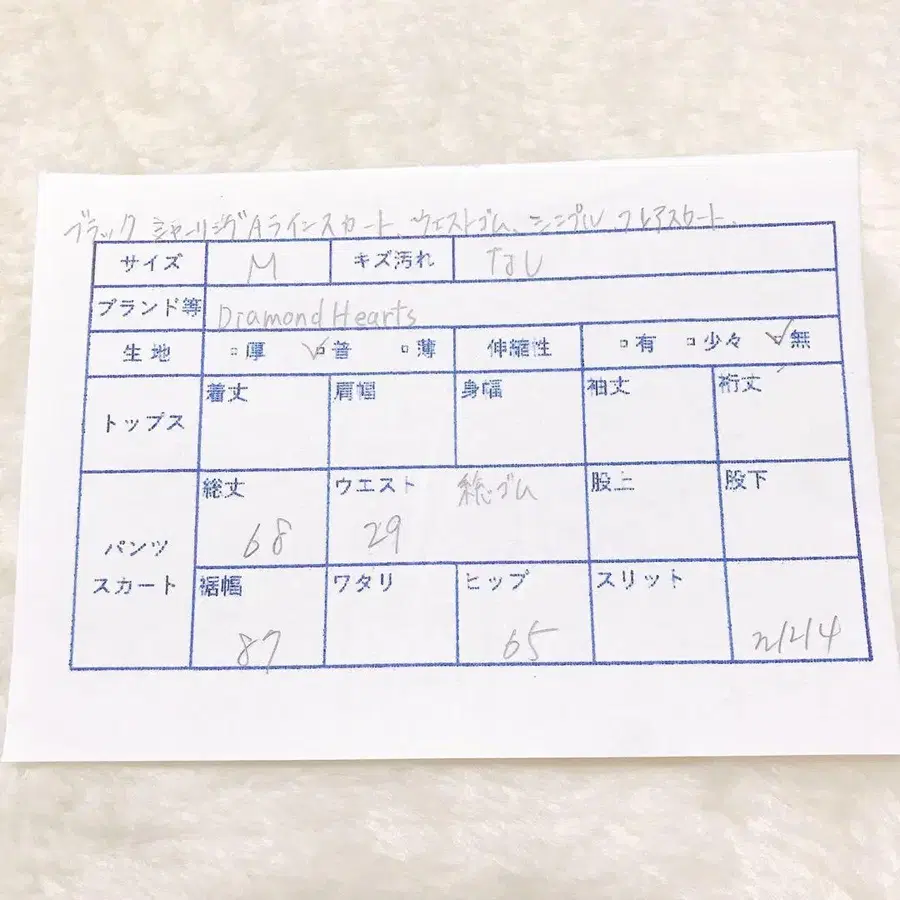 ブラック シャーリングAラインスカート、ウエストゴム、シンプル フレアスカート、
サイズ M キズ汚れ なし
ブランド等 Diamond Hearts
生地 □厚 ☑普 □薄 伸縮性 □有 □少々 ☑無
トップス 着丈 肩幅 身幅 袖丈 裄丈
パンツ スカート 総丈 68 ウエスト 総ゴム 29 股上 股下
裾幅 87 ワタリ ヒップ 65 スリット